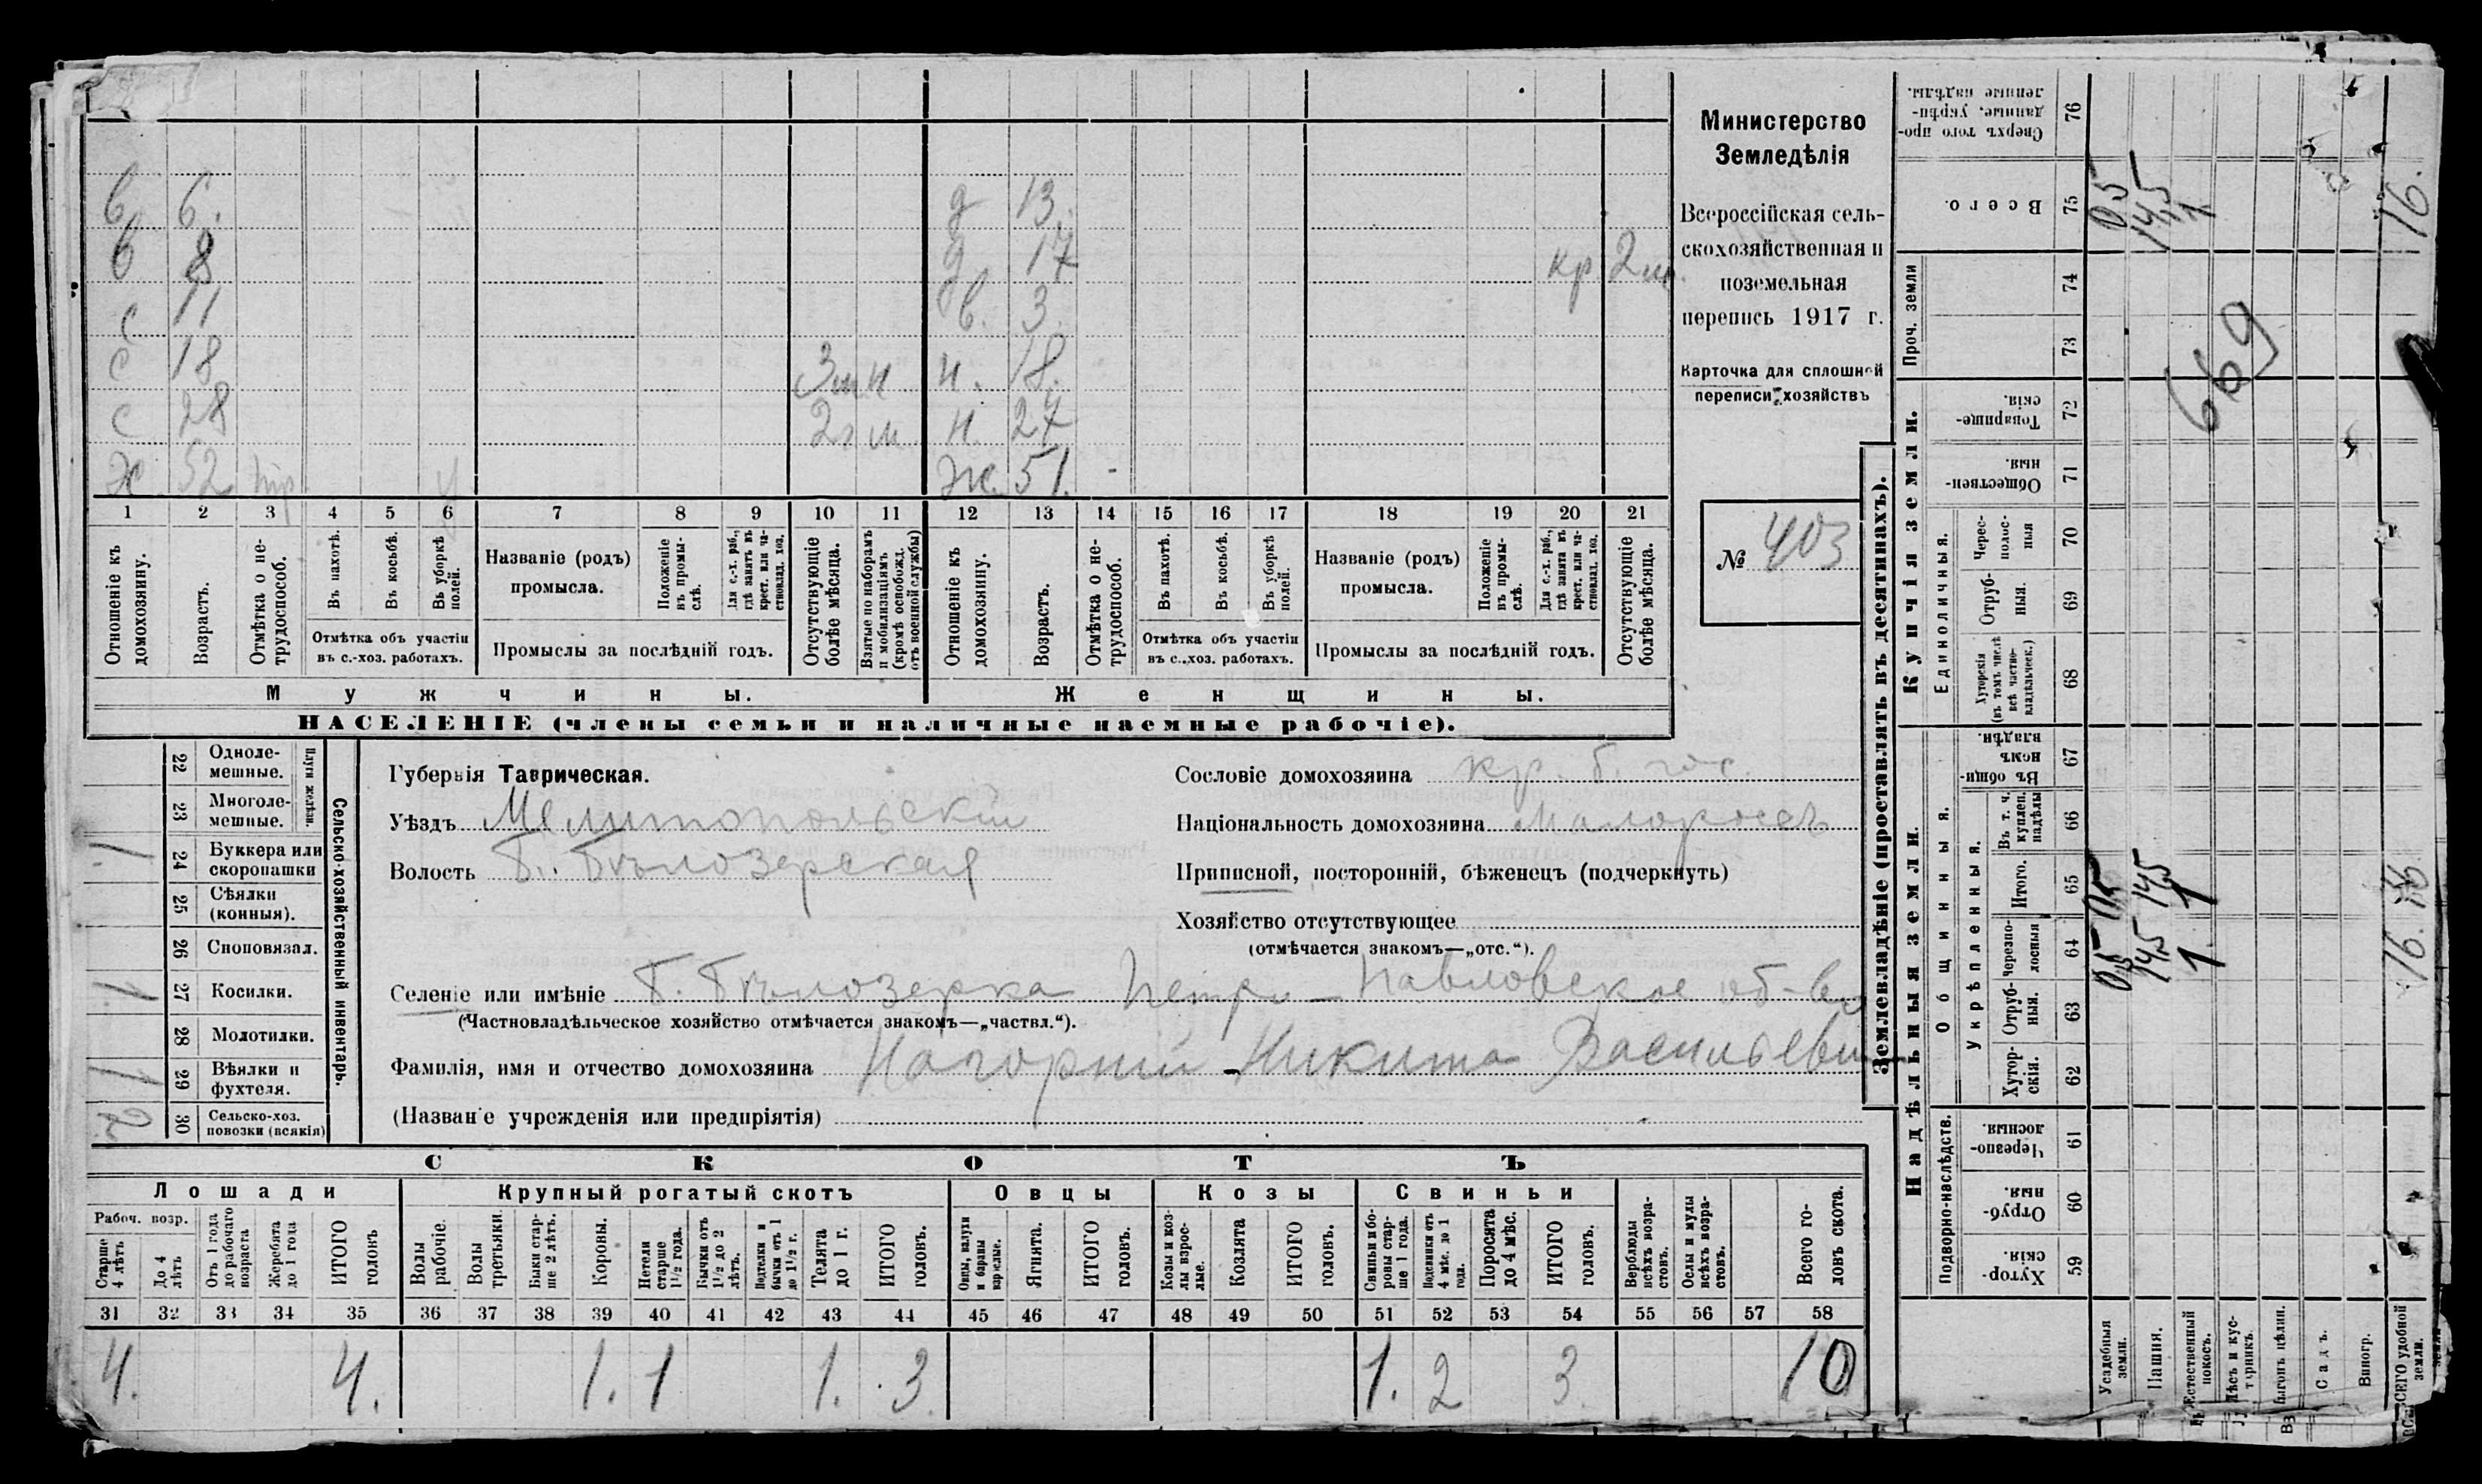 в 6. д 13.
в 8 д 17 кр. 2 м.
с 11 в. 3.
с 18 3 м н н. 18.
с 28 2 г м. н. 27
Ж 52 тр. Ж. 51. -
1 2 3 4 5 6 7 8 9 10 11 12 13 14 15 16 17 18 19 20 21
Отношеніе къ домохозяину.
Возрастъ.
Отмѣтка о не-трудоспособ.
Въ пахотѣ.
Въ косьбѣ.
Въ уборкѣ полей.
Отмѣтка объ участіи въ с.-хоз. работахъ.
Названіе (родъ) промысла.
Положеніе въ промы-слѣ.
Для с.-х. раб., гдѣ занятъ въ крест. или ча-стновлад. хоз.
Промыслы за послѣдній годъ.
Отсутствующіе болѣе мѣсяца.
Взятые по наборамъ и мобилизаціямъ (кромѣ освобожд. отъ военной службы)
Отношеніе къ домохозяину.
Возрастъ.
Отмѣтка о не-трудоспособ.
Въ пахотѣ.
Въ косьбѣ.
Въ уборкѣ полей.
Отмѣтка объ участіи въ с.-хоз. работахъ.
Названіе (родъ) промысла.
Положеніе въ промы-слѣ.
Для с.-х. раб., гдѣ занята въ крест. или ча-стновлад. хоз.
Промыслы за послѣдній годъ.
Отсутствующіе болѣе мѣсяца.
Мужчины. Женщины.
НАСЕЛЕНІЕ (члены семьи и наличные наемные рабочіе).
Министерство
Земледѣлія
Всероссійская сель-
скохозяйственная и
поземельная
перепись 1917 г.
Карточка для сплошной
переписи хозяйствъ
№ 403
Сельско-хозяйственный инвентарь.
Плуги желѣзн.
22 Одноле-мешные.
23 Многоле-мешные.
1 24 Буккера или скоропашки
25 Сѣялки (конныя).
26 Сноповязал.
1. 27 Косилки.
28 Молотилки.
1 29 Вѣялки и фухтеля.
2. 30 Сельско-хоз. повозки (всякія)
Губернія Таврическая.
Уѣздъ Мелитопольскій
Волость Б. Бѣлозерская
Сословіе домохозяина кр. б. гос.
Національность домохозяина Малороссъ
Приписной, посторонній, бѣженецъ (подчеркнуть)
Хозяйство отсутствующее
(отмѣчается знакомъ—„отс.“).
Селеніе или имѣніе Б. Бѣлозерка Петро-Павловское об-во
(Частновладѣльческое хозяйство отмѣчается знакомъ—„частвл.“).
Фамилія, имя и отчество домохозяина Нагорный - Никита Васильевич
(Названіе учрежденія или предпріятія)
СКОТЪ
Лошади Крупный рогатый скотъ Овцы Козы Свиньи
Рабоч. возр.
Старше 4 лѣтъ
До 4 лѣтъ
Отъ 1 года до рабочаго возраста
Жеребята до 1 года
ИТОГО головъ
Волы рабочіе.
Волы третьяки.
Быки стар-ше 2 лѣтъ.
Коровы.
Нетели старше 1½ года.
Бычки отъ 1½ до 2 лѣтъ.
Подтелки и бычки отъ 1 до 1½ г.
Телята до 1 г.
ИТОГО головъ.
Овцы, валухи и бараны взрослые.
Ягнята.
ИТОГО головъ.
Козы и коз-лы взрос-лые.
Козлята
ИТОГО головъ.
Свиньи и бо-ровы стар-ше 1 года.
Подсвинки отъ 4 мѣс. до 1 года.
Поросята до 4 мѣс.
ИТОГО головъ.
Верблюды всѣхъ возра-стовъ.
Ослы и мулы всѣхъ возра-стовъ.
Всего го-ловъ скота.
31 32 33 34 35 36 37 38 39 40 41 42 43 44 45 46 47 48 49 50 51 52 53 54 55 56 57 58
4. 4. 1. 1 1. 3. 1. 2 3. 10
Землевладѣніе (проставлять въ десятинахъ).
Надѣльныя земли. Купчія земли. Проч. земли
Подворно-наслѣдств. Общинныя. Укрѣпленныя. Единоличныя.
Сверхъ того про-данные, укрѣп-ленные надѣлы. 76
Всего. 75 0,5 14,5 1 16.
74
73
Товарище-скія. 72
Обществен-ныя. 71
Черес-полос-ныя 70
Отруб-ныя. 69
Хуторскія (въ томъ числѣ всѣ частно-владѣльческ.) 68
Въ общин-номъ владѣн. 67
Въ т. ч. куплен. надѣлы 66
Итого. 65 0,5 14,5 1 16.
Черезпо-лосныя 64 0,5 14,5 1. 16.
Отруб-ныя. 63
Хутор-скія. 62
Черезпо-лосныя. 61
Отруб-ныя. 60
Хутор-скія. 59
669
Усадебныя земли.
Пашня.
Естественный покосъ.
Лѣсъ и кус-тарникъ.
Выгонъ цѣлин.
Садъ.
Виногр.
ВСЕГО удобной земли.